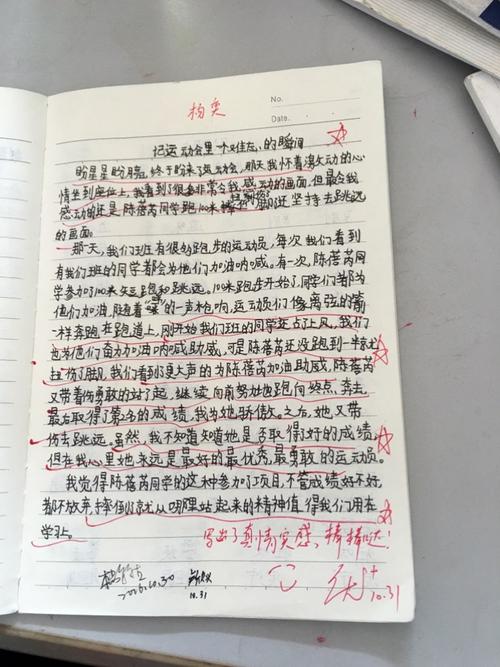 杨奕
No.
Date.
记运动会里一个难忘的瞬间
盼星星盼月亮,终于盼来了运动会,那天我怀着激动的心
情坐到座位上,我看到了很多非常令我感动的画面,但最令我
感动的还是陈蓓茑同学跑100米 脚还坚持去跳远
的画面。
那一天,我们班有很多跑步的运动员,每次我们看到
有我们班的同学都会为他们加油呐喊。有一次,陈蓓茑同
学参加了100米短跑和跳远。100米跑步开始了,同学们都为
他们加油,随着“ ”的一声枪响,运动员们像离弦的箭
一样奔跑在跑道上,刚开始我们班的同学还占了上风,我们
也为他们奋力加油呐喊助威,可是陈蓓茑还没跑到一半就
扭伤了脚,我们看到了更大声的为陈蓓茑加油助威,陈蓓茑
又带着伤勇敢的站了起,继续向前努力地跑向终点,奔去,
最后取得了第 名的成绩,我为她骄傲。之后,她又带
伤去跳远。虽然,我不知道知道她是否取得了好的成绩,
但在我心里她永远是最好的最优秀,最勇敢的运动员。
我觉得陈蓓茑同学的这种参加了项目,不管成绩好不好,
都不放弃,摔倒就从哪理站起来的精神值得我们用在
学习上。
写出了真情实感,棒棒哒!
2016.10.30
10.31
优+
10.31